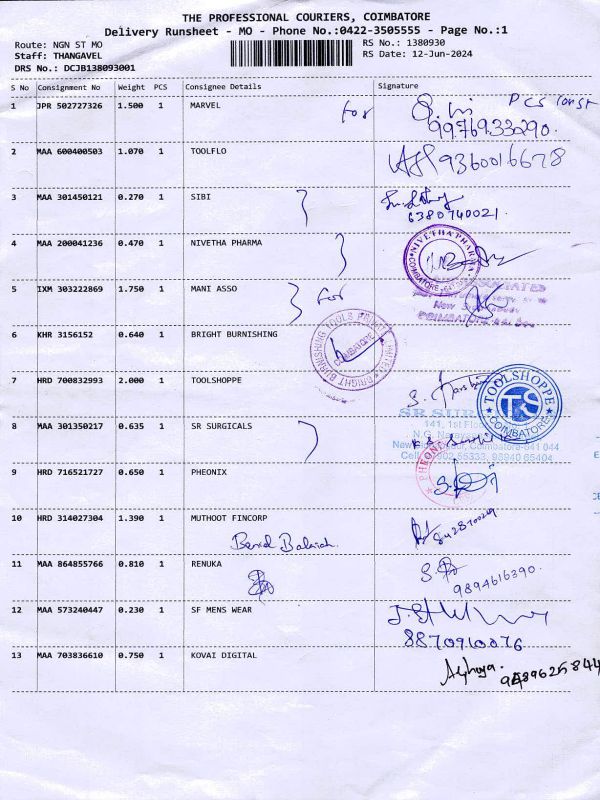 THE PROFESSIONAL COURIERS, COIMBATORE
Delivery Runsheet - MO - Phone No.:0422-3505555 - Page No.:1
Route: NGN ST MO
RS No.: 1380930
Staff: THANGAVEL
RS Date: 12-Jun-2024
DRS No.: DCJB138093001
S No Consignment No Weight PCS Consignee Details Signature
1 JPR 502727326 1.500 1 MARVEL for PCS const
9976933290.
2 MAA 600400503 1.070 1 TOOLFLO 9360016678
3 MAA 301450121 0.270 1 SIBI
6380740021.
4 MAA 200041236 0.470 1 NIVETHA PHARMA NIVETHA PHARMA COIMBATORE
5 IXM 303222869 1.750 1 MANI ASSO for
COIMBATORE
6 KHR 3156152 0.640 1 BRIGHT BURNISHING BRIGHT BURNISHING TOOLS PRIVATE LIMITED COIMBATORE
7 HRD 700832993 2.000 1 TOOLSHOPPE TOOLSHOPPE TS COIMBATORE
8 MAA 301350217 0.635 1 SR SURGICALS SR SUR
141, 1st Floor
Coimbatore-641 044
55333, 98940 65404
9 HRD 716521727 0.650 1 PHEONIX
10 HRD 314027304 1.390 1 MUTHOOT FINCORP
11 MAA 864855766 0.810 1 RENUKA
9894616390.
12 MAA 573240447 0.230 1 SF MENS WEAR
8870910076
13 MAA 703836610 0.750 1 KOVAI DIGITAL